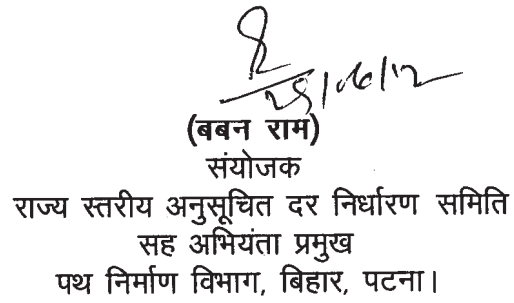 25/06/12
(बबन राम)
संयोजक
राज्य स्तरीय अनुसूचित दर निर्धारण समिति
सह अभियंता प्रमुख
पथ निर्माण विभाग, बिहार, पटना।